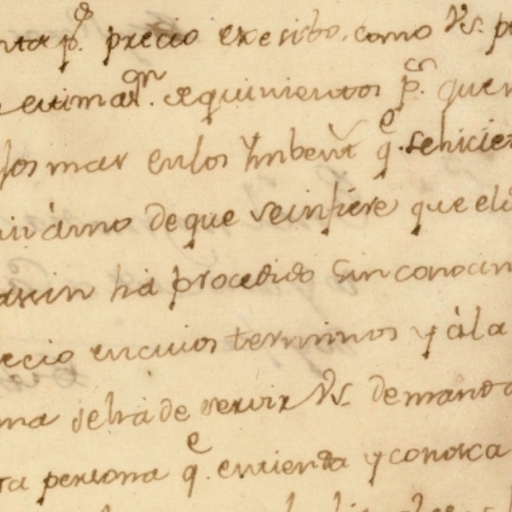 nta p.r precio exesibo, como Vs. p
estimasn. de quinientos p.s quen
los mas en los Ynbent q.e se hicie
ui ánno de que se infiere que el
asun ha procedido sin conocim
ecio en cuios terminos y á la
ma se ha de servir Vs. de manda
ra persona q.e entienda y conosca